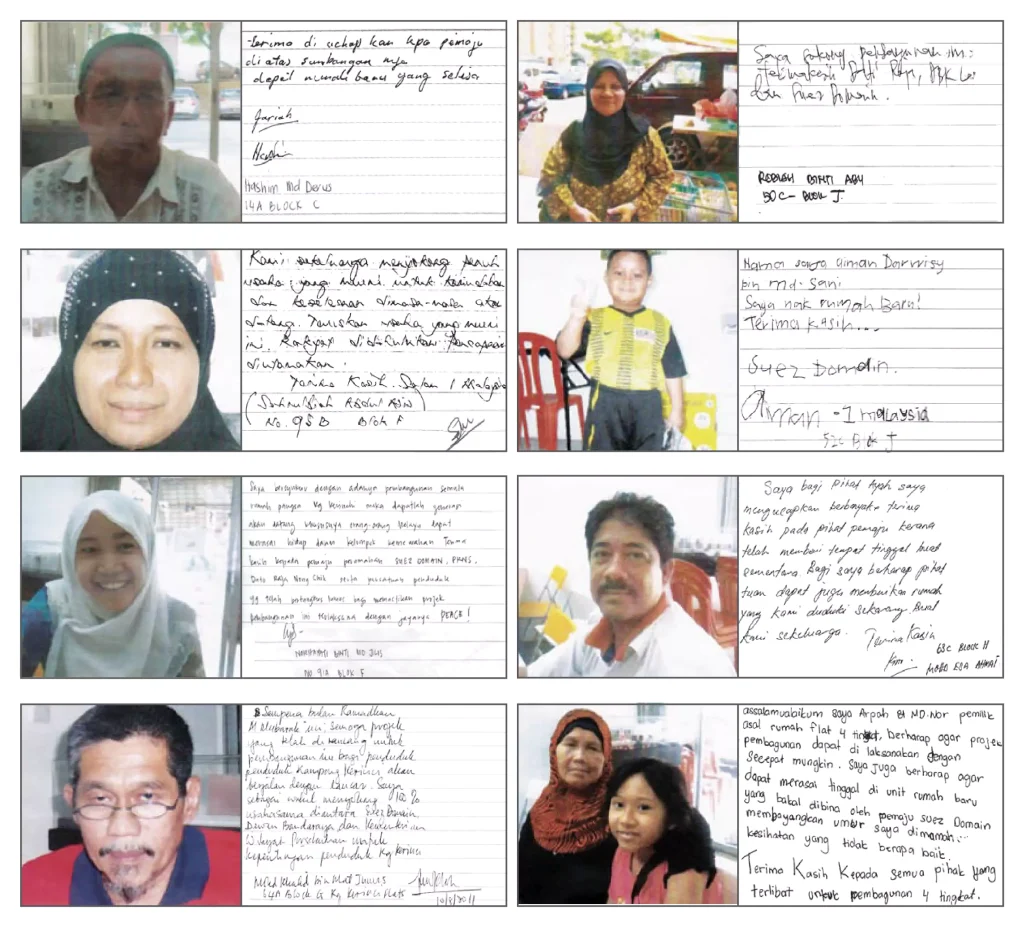 Terima di uchap kan kpa pemaju
di atas sumbangan nya
dapat rumah baru yang selesa
Jariah
Hashi
Hashim Md Derus
14A BLOCK C
Saya sokong pembangunan ini.
Terimakasih
dan Suez
ROBIAH BINTI ABU
50C - BLOK J.
Kami sekeluarga menyokong penuh
usaha yang murni untuk keindahan
dan keselesaan dimasa-masa akan
datang. Teruskan usaha yang murni
ini. Rakyat didahulukan pencapaian
diutamakan.
Terima Kasih. Salam 1 Malaysia
No. 95B Blok F
Nama saya aiman Darwisy
bin md. Sani
Saya nak rumah Baru!
Terima kasih...
Suez Domain.
Aiman - 1 malaysia
52C Blok J
Saya bersyukur dengan adanya pembangunan semula
rumah pangsa Kg Kerinchi maka dapatlah generasi
akan datang khususnya orang-orang melayu dapat
merasai hidup dalam kelompok kemewahan. Terima
kasih kepada pemaju perumahan SUEZ DOMAIN, PKNS,
Dato Raja Nong Chik serta persatuan penduduk
yg telah bertungkus lumus bagi memastikan projek
pembangunan ini terlaksana dengan jayanya. PEACE!
BINTI MD JUS
NO 91A BLOK F
Saya bagi pihak Ayah saya
mengucapkan berbanyak terima
kasih pada pihak pemaju kerana
telah memberi tempat tinggal buat
sementara. Bagi saya berharap pihak
tuan dapat juga memberikan rumah
yang kami duduki sekarang buat
kami sekeluarga. Terima Kasih
65C BLOCK H
MOHD ESA AHMAT
Sempena bulan Ramadhan
Al Mubarak ini, semoga projek
yang telah di rancang untuk
pembangunan bagi penduduk
penduduk Kampong Kerinci akan
berjalan dengan lancar. Saya
sebagai wakil menyokong 100%
usahasama diantara Suez Domain,
Dewan Bandaraya dan Kementerian
Wilayah Persekutuan untuk
kepentingan penduduk Kg Kerinci
Mohd Khalid bin Mat Junus
64A Block G Kg Kerinci Flats
10/8/2011
assalamualaikum saya Arpah Bt MD.Nor pemilik
asal rumah flat 4 tingkat, berharap agar projek
pembagunan dapat di laksanakan dengan
secepat mungkin. Saya juga berharap agar
dapat merasai tinggal di unit rumah baru
yang bakal dibina oleh pemaju suez Domain
memboyangkan umur saya dimamah...
kesihatan yang tidak berapa baik.
Terima Kasih Kepada semua pihak yang
terlibat untuk pembagunan 4 tingkat.